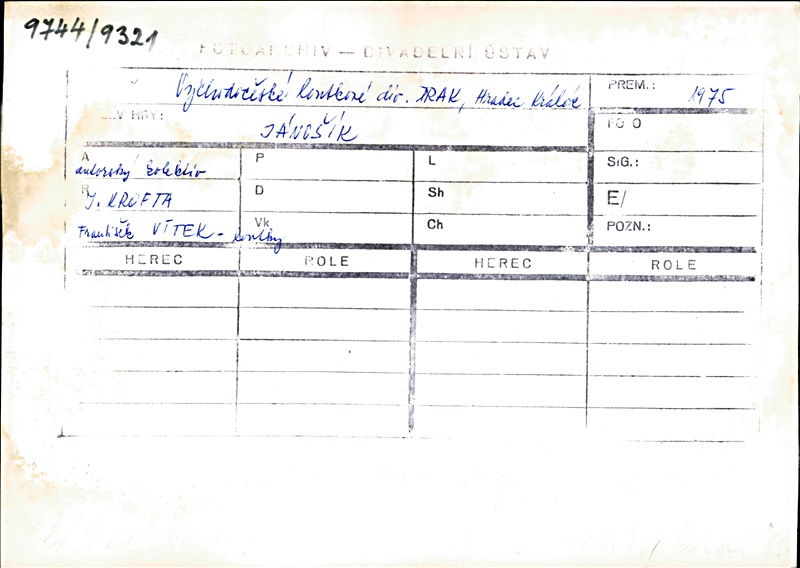 9744/9321
FOTOARCHIV — DIVADELNÍ ÚSTAV
Východočeské loutkové div. DRAK, Hradec Králové
PREM.: 1975
EV HRY:
JÁNOŠÍK
FOTO
A autorský kolektiv
P
L
SIG.:
R J. KROFTA
D
Sh
E/
František VÍTEK - loutky
Vk
Ch
POZN.:
HEREC ROLE HEREC ROLE